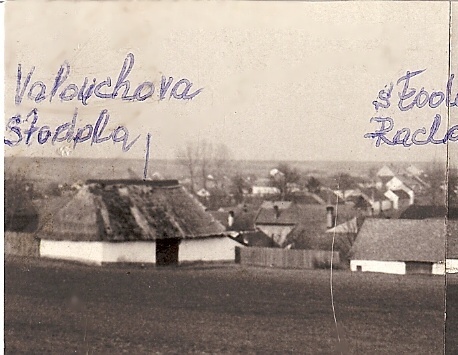 Valouchova
stodola
stodo
Racla